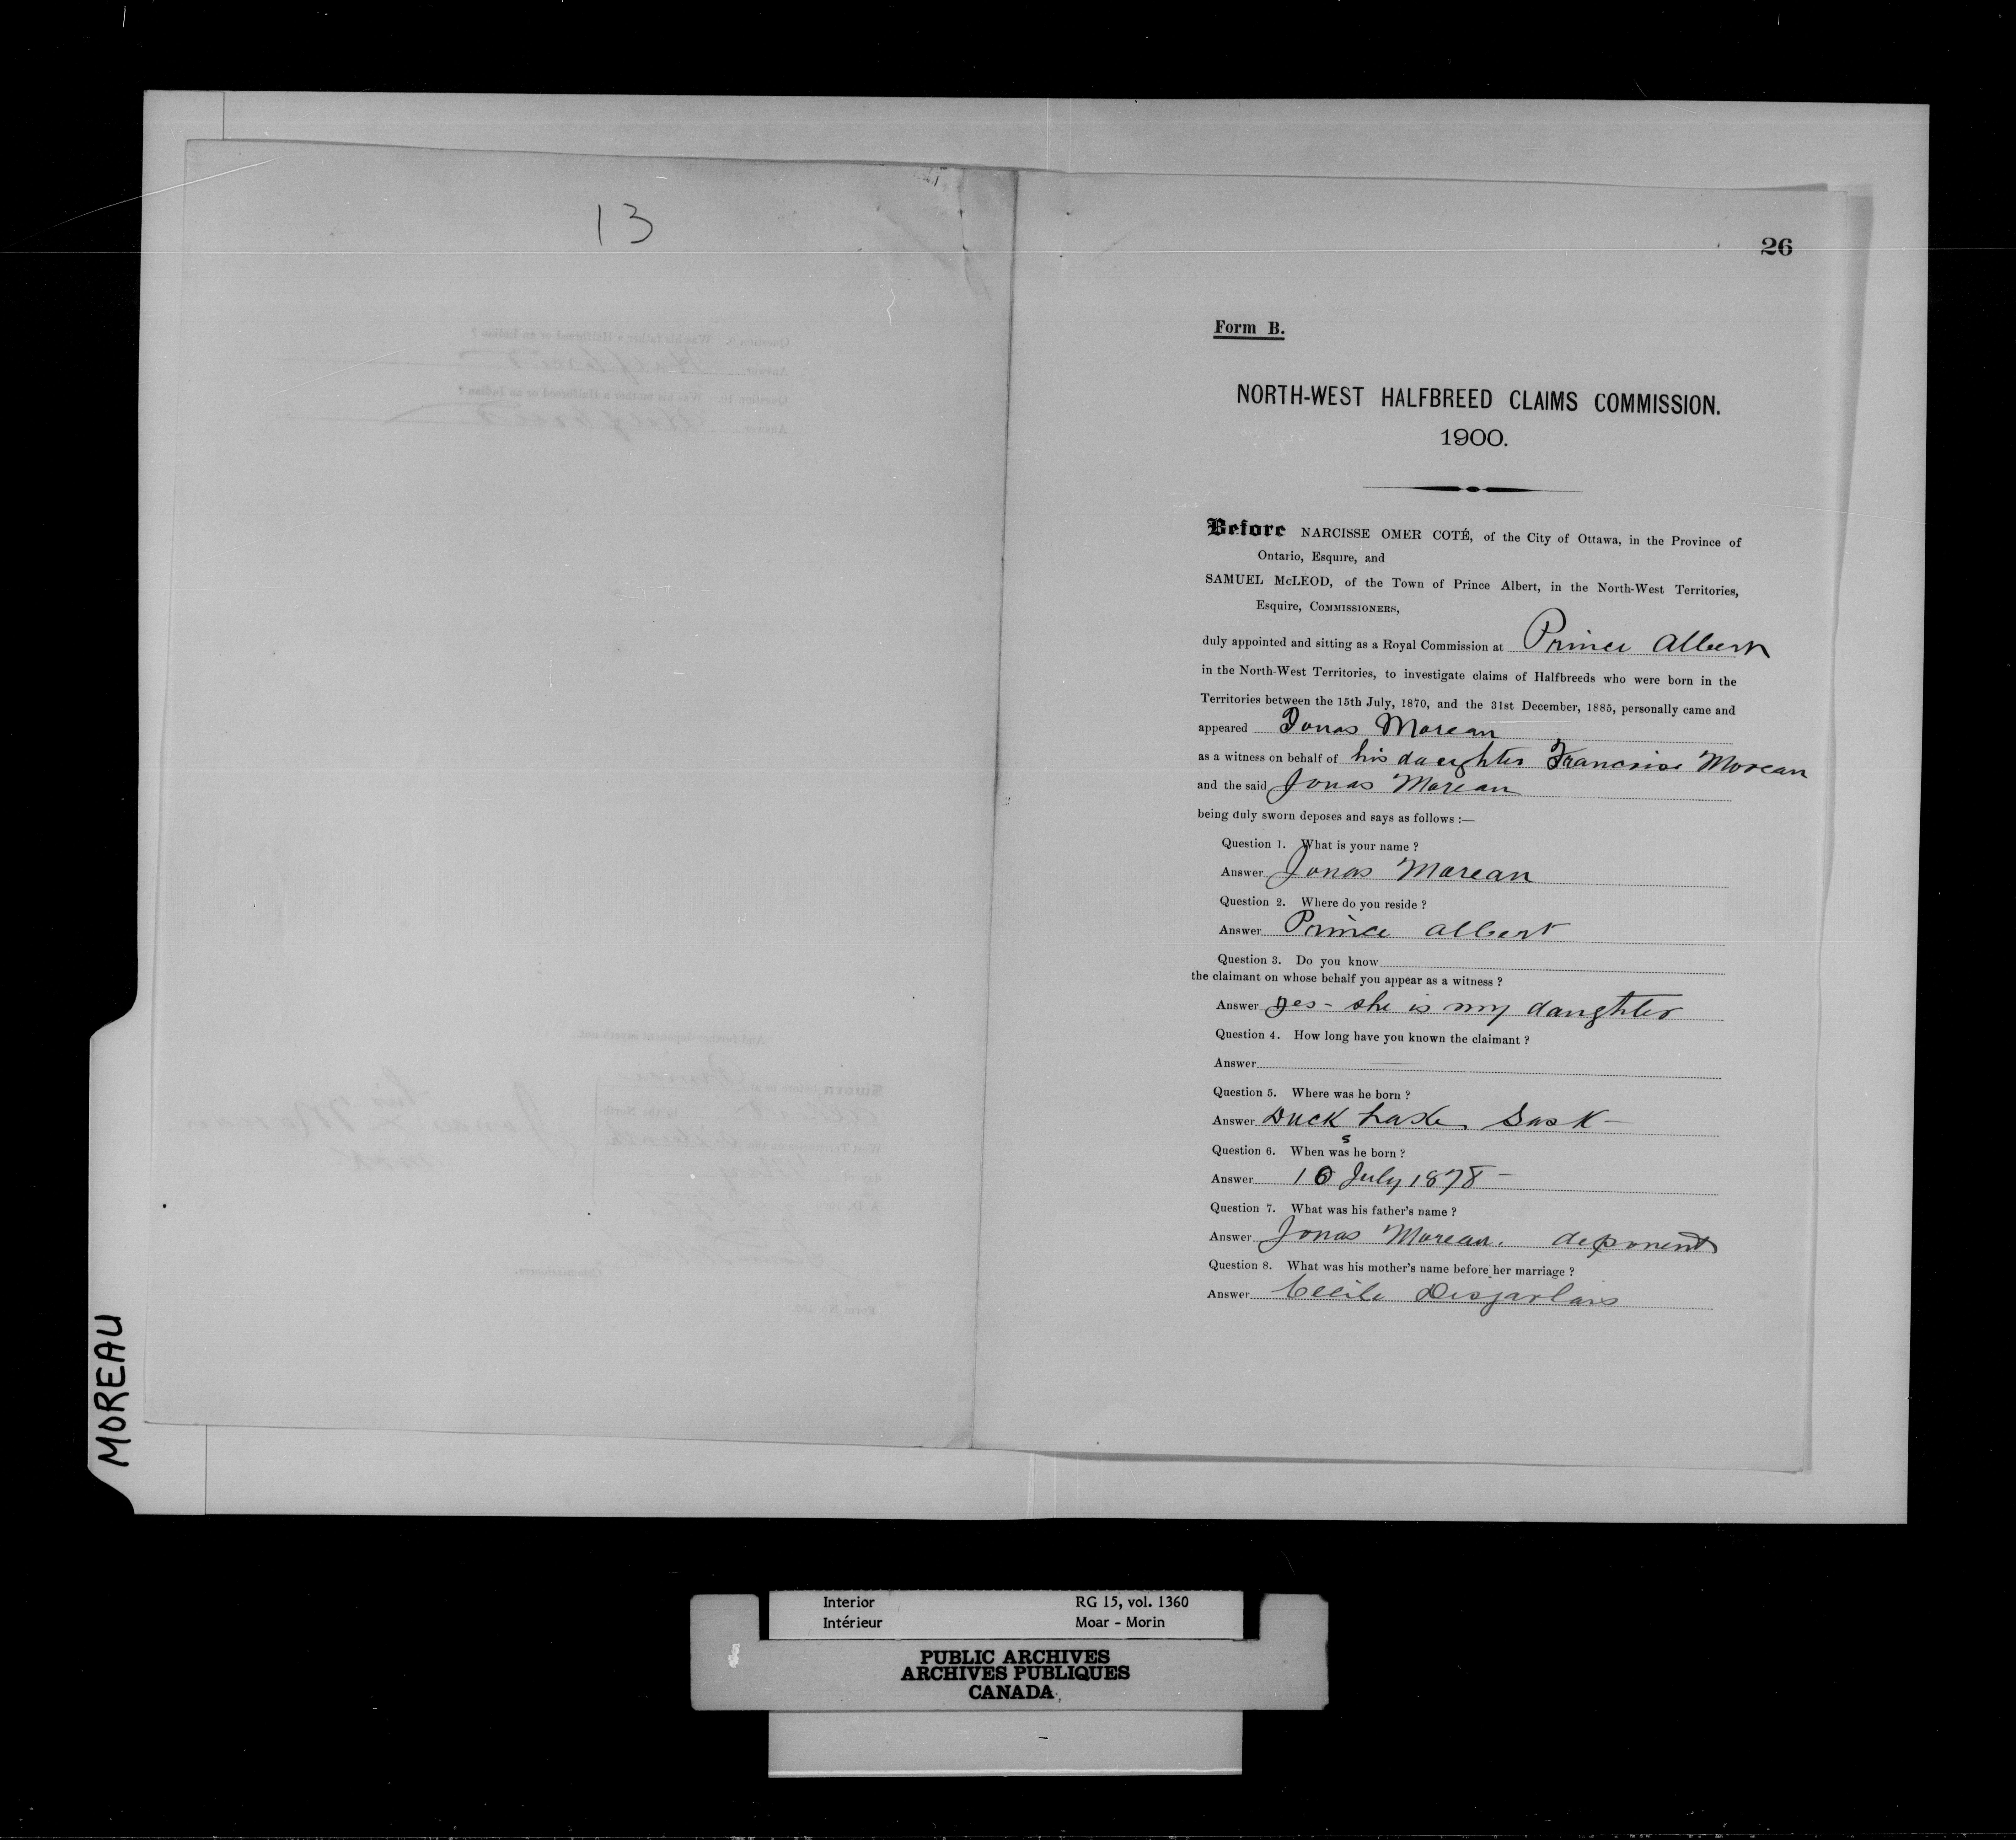 13
26
Form B.
NORTH-WEST HALFBREED CLAIMS COMMISSION.
1900.
Before NARCISSE OMER COTÉ, of the City of Ottawa, in the Province of
Ontario, Esquire, and
SAMUEL McLEOD, of the Town of Prince Albert, in the North-West Territories,
Esquire, COMMISSIONERS,
duly appointed and sitting as a Royal Commission at Prince Albert
in the North-West Territories, to investigate claims of Halfbreeds who were born in the
Territories between the 15th July, 1870, and the 31st December, 1885, personally came and
appeared Jonas Moreau
as a witness on behalf of his daughter Francoise Moreau
and the said Jonas Moreau
being duly sworn deposes and says as follows :—
Question 1. What is your name ?
Answer Jonas Moreau
Question 2. Where do you reside ?
Answer Prince Albert
Question 3. Do you know
the claimant on whose behalf you appear as a witness ?
Answer yes - she is my daughter
Question 4. How long have you known the claimant ?
Answer
Question 5. Where was he born ?
Answer Duck Lake, Sask -
Question 6. When was s he born ?
Answer 10 July 1878 -
Question 7. What was his father's name ?
Answer Jonas Moreau. deponent
Question 8. What was his mother's name before her marriage ?
Answer Cecile Desjarlais
MOREAU
Interior RG 15, vol. 1360
Intérieur Moar - Morin
PUBLIC ARCHIVES
ARCHIVES PUBLIQUES
CANADA